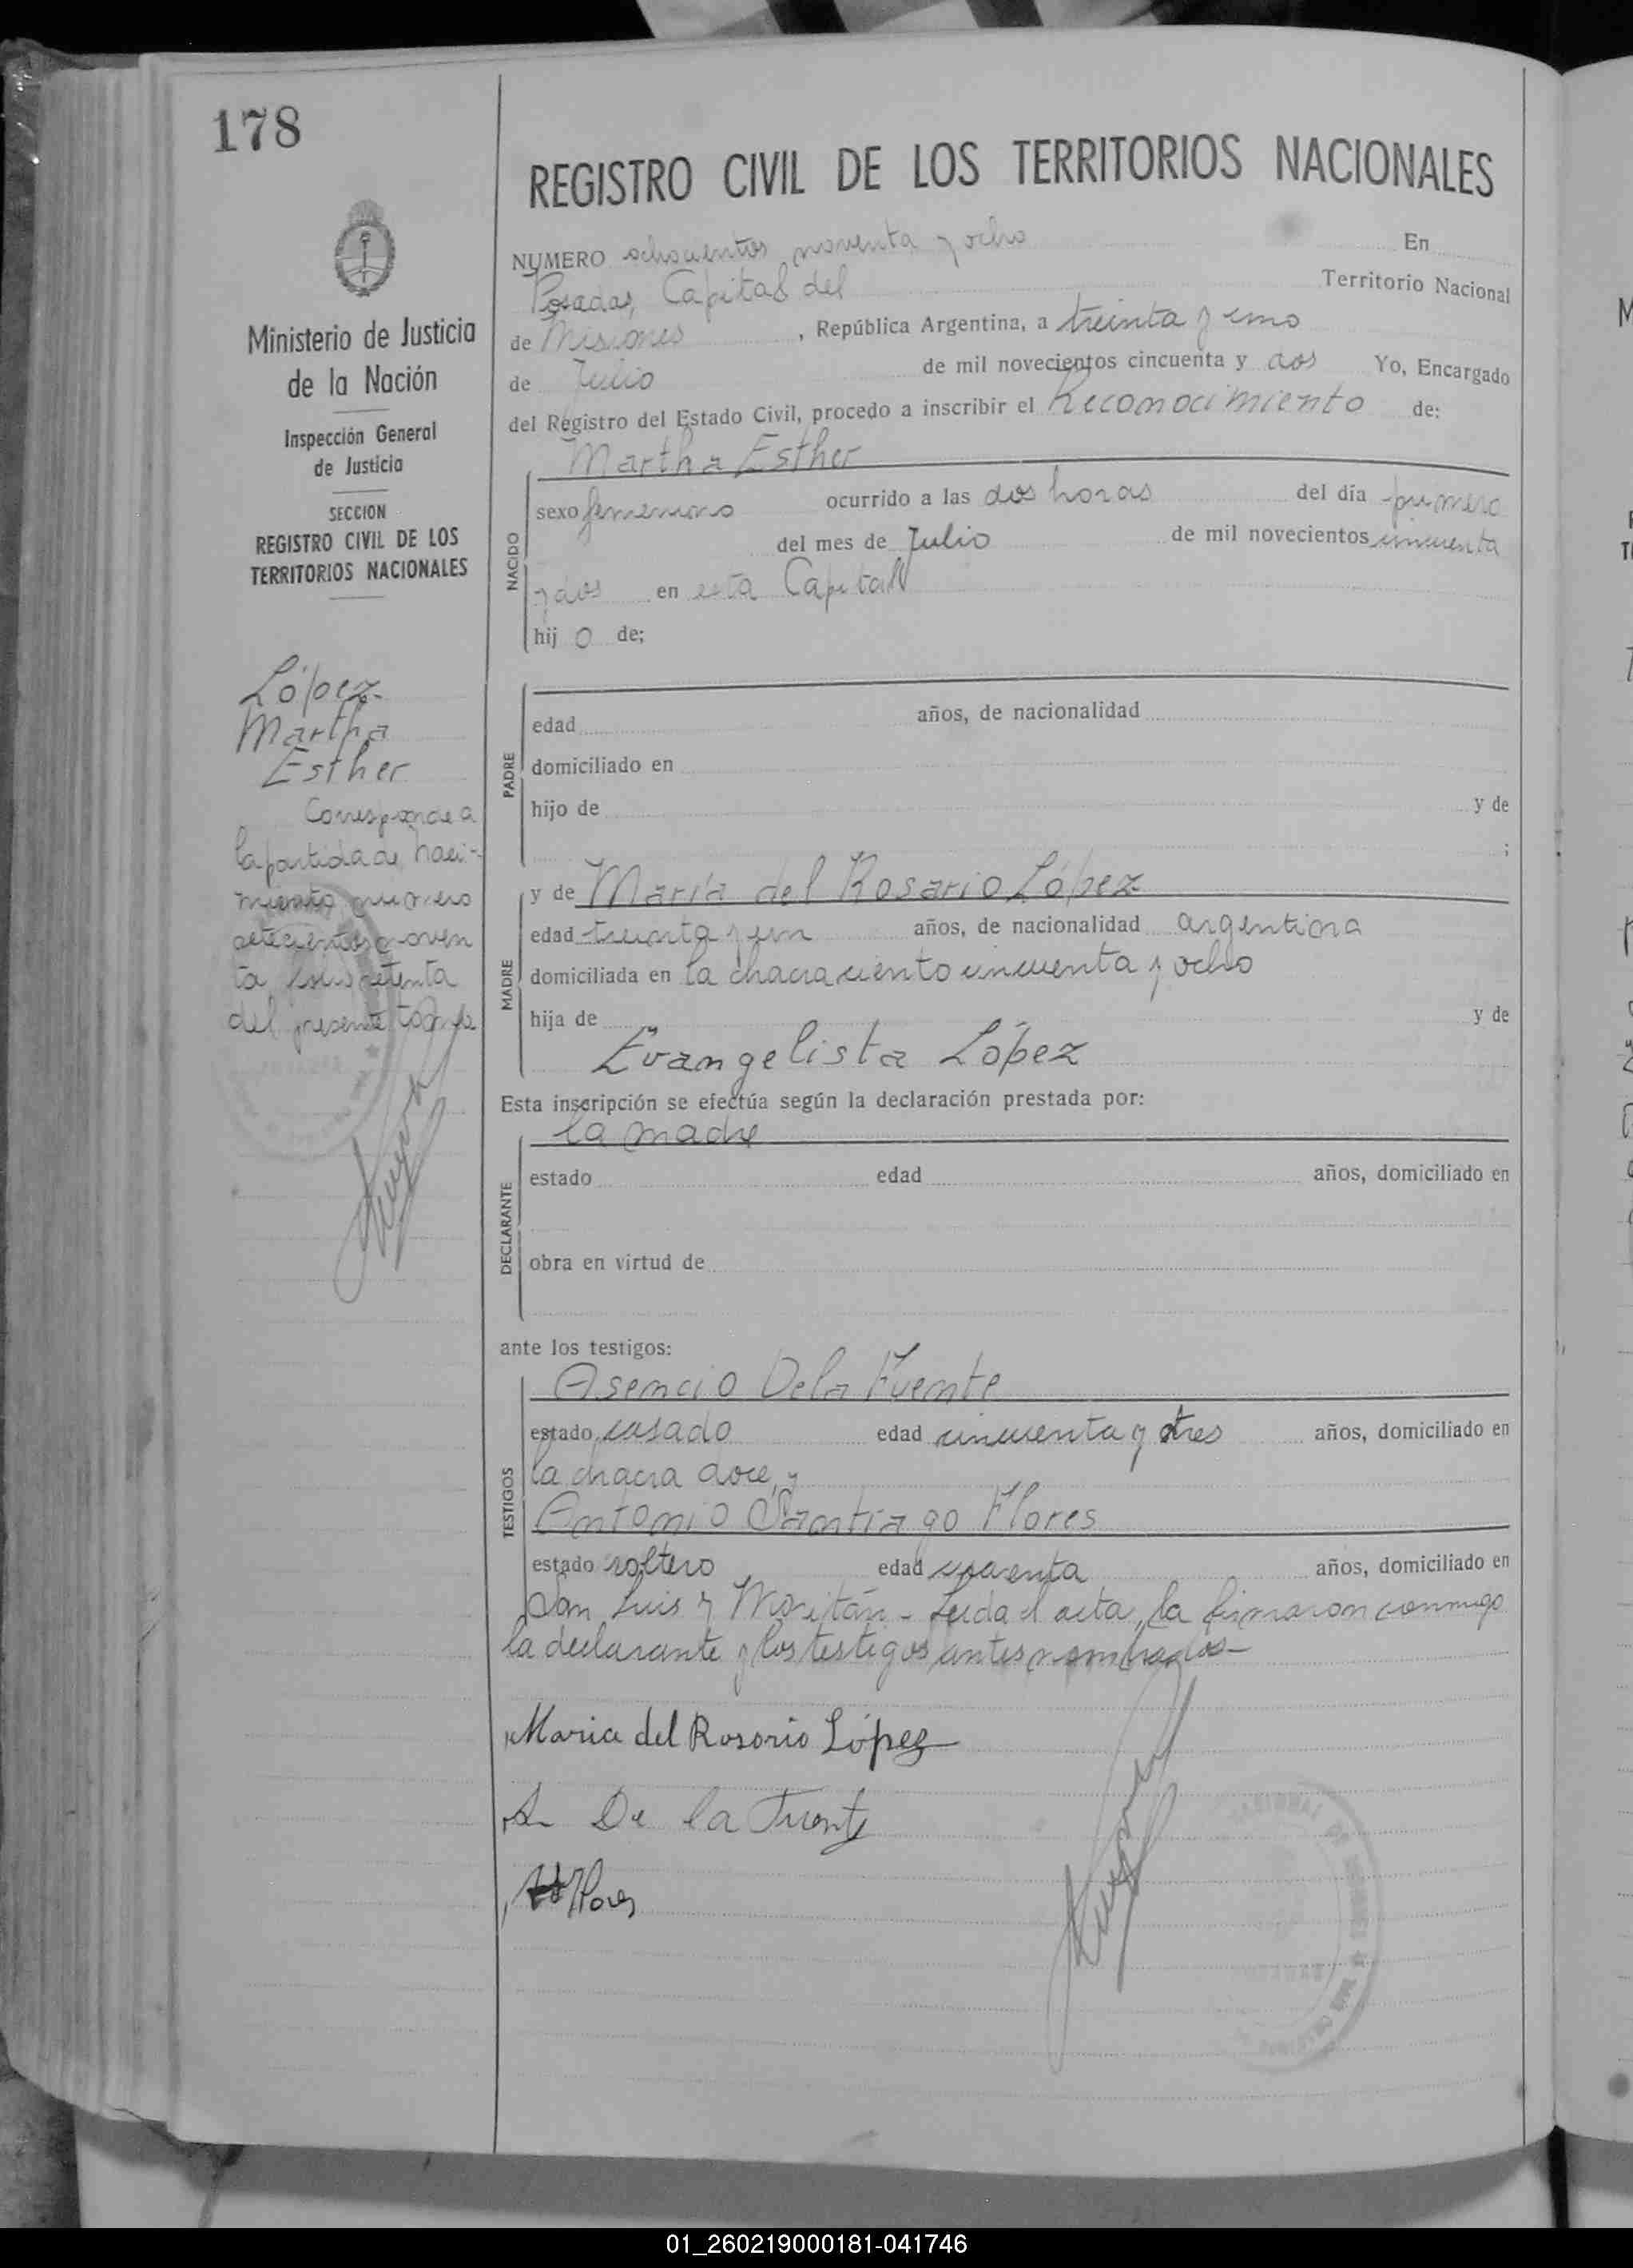 178
Ministerio de Justicia
de la Nación
Inspección General
de Justicia
SECCION
REGISTRO CIVIL DE LOS
TERRITORIOS NACIONALES
López
Martha
Esther
Corresponde a
la partida de naci-
miento número
setecientos noven
ta folio setenta
del presente tomo
REGISTRO CIVIL DE LOS TERRITORIOS NACIONALES
NUMERO ochocientos noventa y ocho En
Posadas, Capital del Territorio Nacional
de Misiones, República Argentina, a treinta y uno
de Julio de mil novecientos cincuenta y dos Yo, Encargado
del Registro del Estado Civil, procedo a inscribir el Reconocimiento de:
NACIDO
Martha Esther
sexo femenino ocurrido a las dos horas del día primero
del mes de Julio de mil novecientos cincuenta
y dos en esta Capital
hij o de;
PADRE
edad años, de nacionalidad
domiciliado en
hijo de y de
;
MADRE
y de María del Rosario López
edad treinta y un años, de nacionalidad argentina
domiciliada en la chacra ciento cincuenta y ocho
hija de y de
Evangelista López
Esta inscripción se efectúa según la declaración prestada por:
DECLARANTE
la madre
estado edad años, domiciliado en
obra en virtud de
ante los testigos:
TESTIGOS
Asencio De la Fuente
estado casado edad cincuenta y tres años, domiciliado en
la chacra doce, y
Antonio Santiago Flores
estado soltero edad cuarenta años, domiciliado en
San Luis y Moritán - Leida el acta, la firmaron conmigo
la declarante y los testigos antes nombrados-
Maria del Rosario López
A. De la Fuente
Flores
01_260219000181-041746